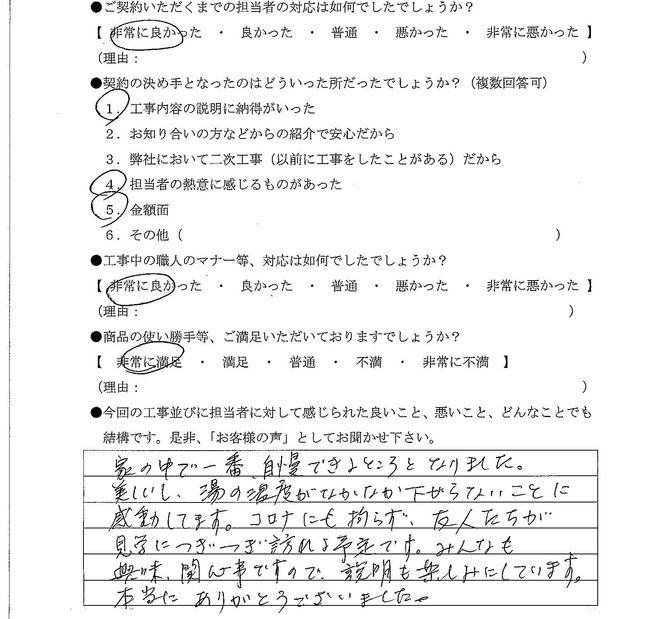 ●ご契約いただくまでの担当者の対応は如何でしたでしょうか?
【 非常に良かった ・ 良かった ・ 普通 ・ 悪かった ・ 非常に悪かった 】
(理由: )
●契約の決め手となったのはどういった所だったでしょうか?(複数回答可)
1.工事内容の説明に納得がいった
2.お知り合いの方などからの紹介で安心だから
3.弊社において二次工事(以前に工事をしたことがある)だから
4.担当者の熱意に感じるものがあった
5.金額面
6.その他( )
●工事中の職人のマナー等、対応は如何でしたでしょうか?
【 非常に良かった ・ 良かった ・ 普通 ・ 悪かった ・ 非常に悪かった 】
(理由: )
●商品の使い勝手等、ご満足いただいておりますでしょうか?
【 非常に満足 ・ 満足 ・ 普通 ・ 不満 ・ 非常に不満 】
(理由: )
●今回の工事並びに担当者に対して感じられた良いこと、悪いこと、どんなことでも
結構です。是非、「お客様の声」としてお聞かせ下さい。
家の中で一番、自慢できるところとなりました。
美しいし、湯の温度がなかなか下がらないことに
感動してます。コロナにも拘らず、友人たちが
見学につぎつぎ訪れる予定です。みんなも
興味、関心事ですので、説明も楽しみにしています。
本当に ありがとうございました。